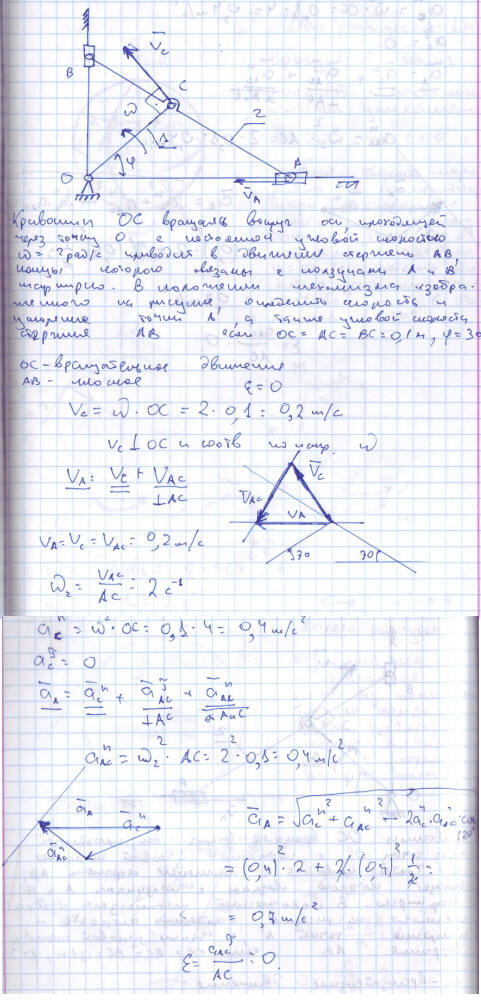 V̄c
B
C
ω
2
1
φ
A
O
V̄A
Кривошип OC вращаясь вокруг оси, проходящей
через точку O с постоянной угловой скоростью
ω = 2рад/с приводит в движение стержень AB,
концы которого связаны с ползунами A и B
шарнирно. В положении механизма изобра-
женного на рисунке, определить скорость и
ускорение точки A, а также угловой скорости
стержня AB если OC = AC = BC = 0,1м, φ = 30
OC - вращательное движение
AB - плоское
ε = 0
Vc = ω · OC = 2 · 0,1 = 0,2 м/с
Vc ⊥ OC и соотв по напр. ω
V̄A = V̄c + V̄AC
⊥AC
V̄c
V̄AC
VA
VA = Vc = VAC = 0,2 м/с
ω2 = VAC / AC = 2 с⁻¹
aᶜⁿ = ω² · OC = 0,1 · 4 = 0,4 м/с²
aᶜτ = 0
āA = ācⁿ + āACτ + āACⁿ
⊥AC
aACⁿ = ω2² · AC = 2² · 0,1 = 0,4 м/с²
āA
ācⁿ
āACⁿ
= (0,4)² · 2 + 2 · (0,4)² 1/2 =
= 0,7 м/с²
ε = aACτ / AC = 0.